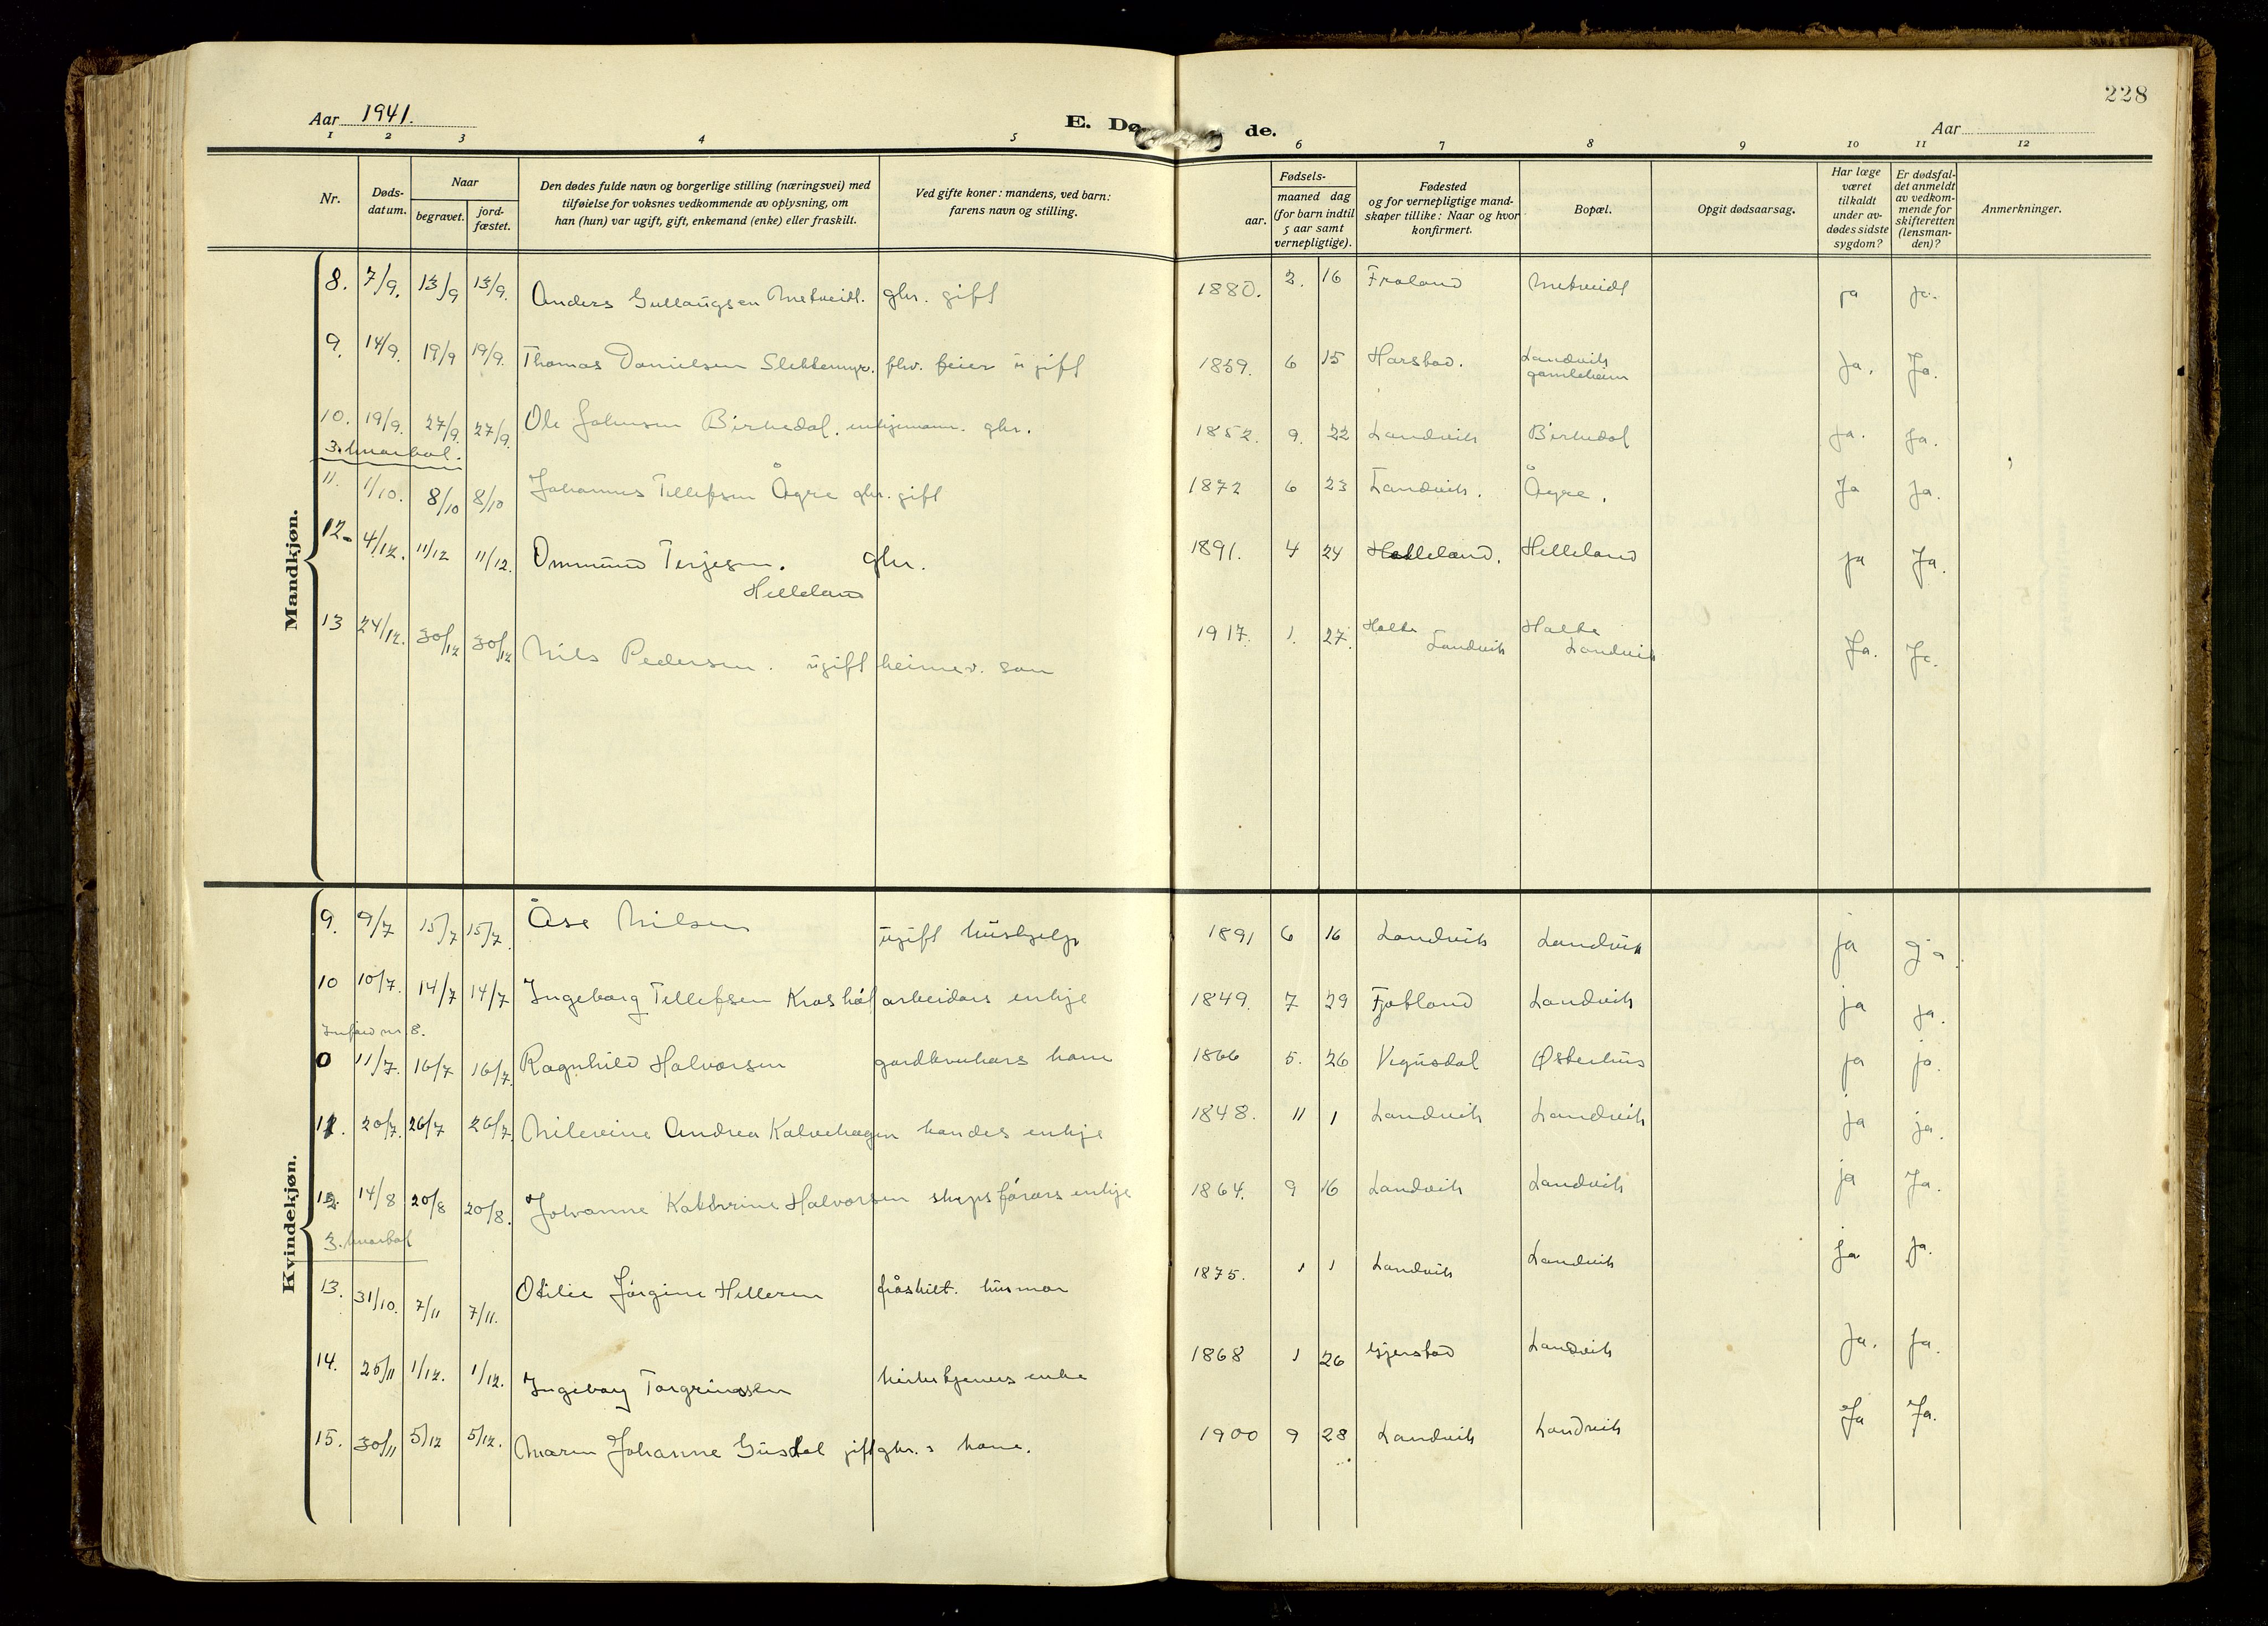 228
Aar 1941.
E. Dø
de.
Aar
1 2 3 4 5 6 7 8 9 10 11 12
Nr.
Døds-
datum.
Naar
begravet.
jord-
fæstet.
Den dødes fulde navn og borgerlige stilling (næringsvei) med
tilføielse for voksnes vedkommende av oplysning, om
han (hun) var ugift, gift, enkemand (enke) eller fraskilt.
Ved gifte koner: mandens, ved barn:
farens navn og stilling.
Fødsels-
aar.
maaned dag
(for barn indtil
5 aar samt
vernepligtige).
Fødested
og for vernepligtige mand-
skaper tillike: Naar og hvor
konfirmert.
Bopæl.
Opgit dødsaarsag.
Har læge
været
tilkaldt
under av-
dødes sidste
sygdom?
Er dødsfal-
det anmeldt
av vedkom-
mende for
skifteretten
(lensman-
den)?
Anmerkninger.
Mandkjøn.
8. 7/9. 13/9 13/9. Anders Gullaugsen Metveidt. gbr. gift 1880. 2. 16 Froland Metveidt ja ja.
9. 14/9. 19/9 19/9. Thomas Danielsen Slettemyr. fhv. feier ugift 1859. 6 15 Harstad. Landvik ja. Ja.
gamleheim
10. 19/9. 27/9. 27/9. Ole Johnsen Birkedal. enkjemann. gbr. 1852. 9. 22 Landvik Birkedal ja. ja.
3. kvartal.
11. 1/10. 8/10 8/10 Johannes Tellefsen Ågre gbr. gift 1872 6 23 Landvik. Ågre. Ja ja.
12. 4/12. 11/12 11/12. Ommund Terjesen. gbr. 1891. 4 24 Helleland. Helleland ja Ja.
Helleland
13 24/12. 30/12 30/12 Nils Pedersen. ugift heimev. son 1917. 1. 27. Holte Landvik Holte Landvik Ja. Ja.
Kvindekjøn.
9. 9/7 15/7 15/7. Åse Nilsen ugift hushjelp 1891 6 16 Landvik Landvik ja ja.
10 10/7. 14/7 14/7 Ingeborg Tellefsen arbeidars enkje 1849. 7 29 Fjotland Landvik ja ja.
Innført nr. 8.
0 11/7. 16/7 16/7. Ragnhild Halvorsen gardbrukars kone 1866 5. 26 Vegusdal Østerhus ja ja.
11. 20/7. 26/7 26/7 Nilevine Andrea Kalvehagen handes enkje 1848. 11 1 Landvik Landvik ja ja.
12. 14/8 20/8 20/8. Johanne Kathrine Halvorsen skipsførars enkje 1864. 9 16 Landvik Landvik ja Ja.
3. kvartal
13. 31/10. 7/11 7/11. Otilie Jørgine Helleren fråskilt. husmor 1875. 1 1 Landvik Landvik ja ja.
14. 25/11 1/12. 1/12. Ingeborg Torgrimssen kirketjeners enke 1868 1 26 Gjerstad Landvik Ja. ja.
15. 30/11 5/12 5/12. Maren Johanne Gusdal gift gbr.s kone. 1900 9 28 Landvik Landvik Ja Ja.